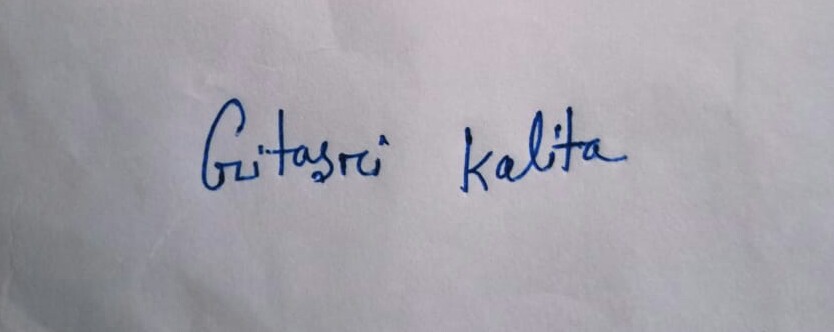 Gitasri Kalita